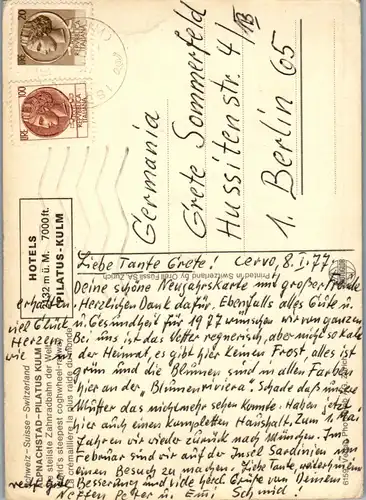 LIRE 20
LIRE 100
REPUBBLICA ITALIANA
Germania
Grete Sommerfeld
Hussitenstr. 4/
1. Berlin 65
HOTELS
PILATUS-KULM
2132 m ü. M. 7000 ft.
Schweiz – Suisse – Switzerland
ALPNACHSTAD–PILATUS KULM
Die steilste Zahnradbahn der Welt
World's steepest cogwheel-railway
La crémaillère la plus raide du monde
Printed in Switzerland by Orell Füssli SA, Zurich
Liebe Tante Grete! Cervo, 8. I. 77.
Deine schöne Neujahrskarte mit großer Freude
erhalten. Herzlichen Dank dafür. Ebenfalls alles Gute u.
viel Glück u Gesundheit für 1977 wünschen wir von ganzen
Herzen. Bei uns ist das Wetter regnerisch, aber nicht so kalt
wie in der Heimat, es gibt hier keinen Frost, alles ist
grün und die Blumen sind in allen Farben
hier an der „Blumenriviera". Schade daß unsere
Mütter das nicht mehr sehen konnte. Haben jetzt
hier auch einen kompletten Haushalt. Zum 1. Mai
fahren wir wieder zurück nach München. Im
Februar sind wir auf der Insel Sardinien um
einen Besuch zu machen. Liebe Tante, weiterhin
recht gute Besserung und viele herzl. Grüße von Deinen
Neffen Peter u Emi Schmid!